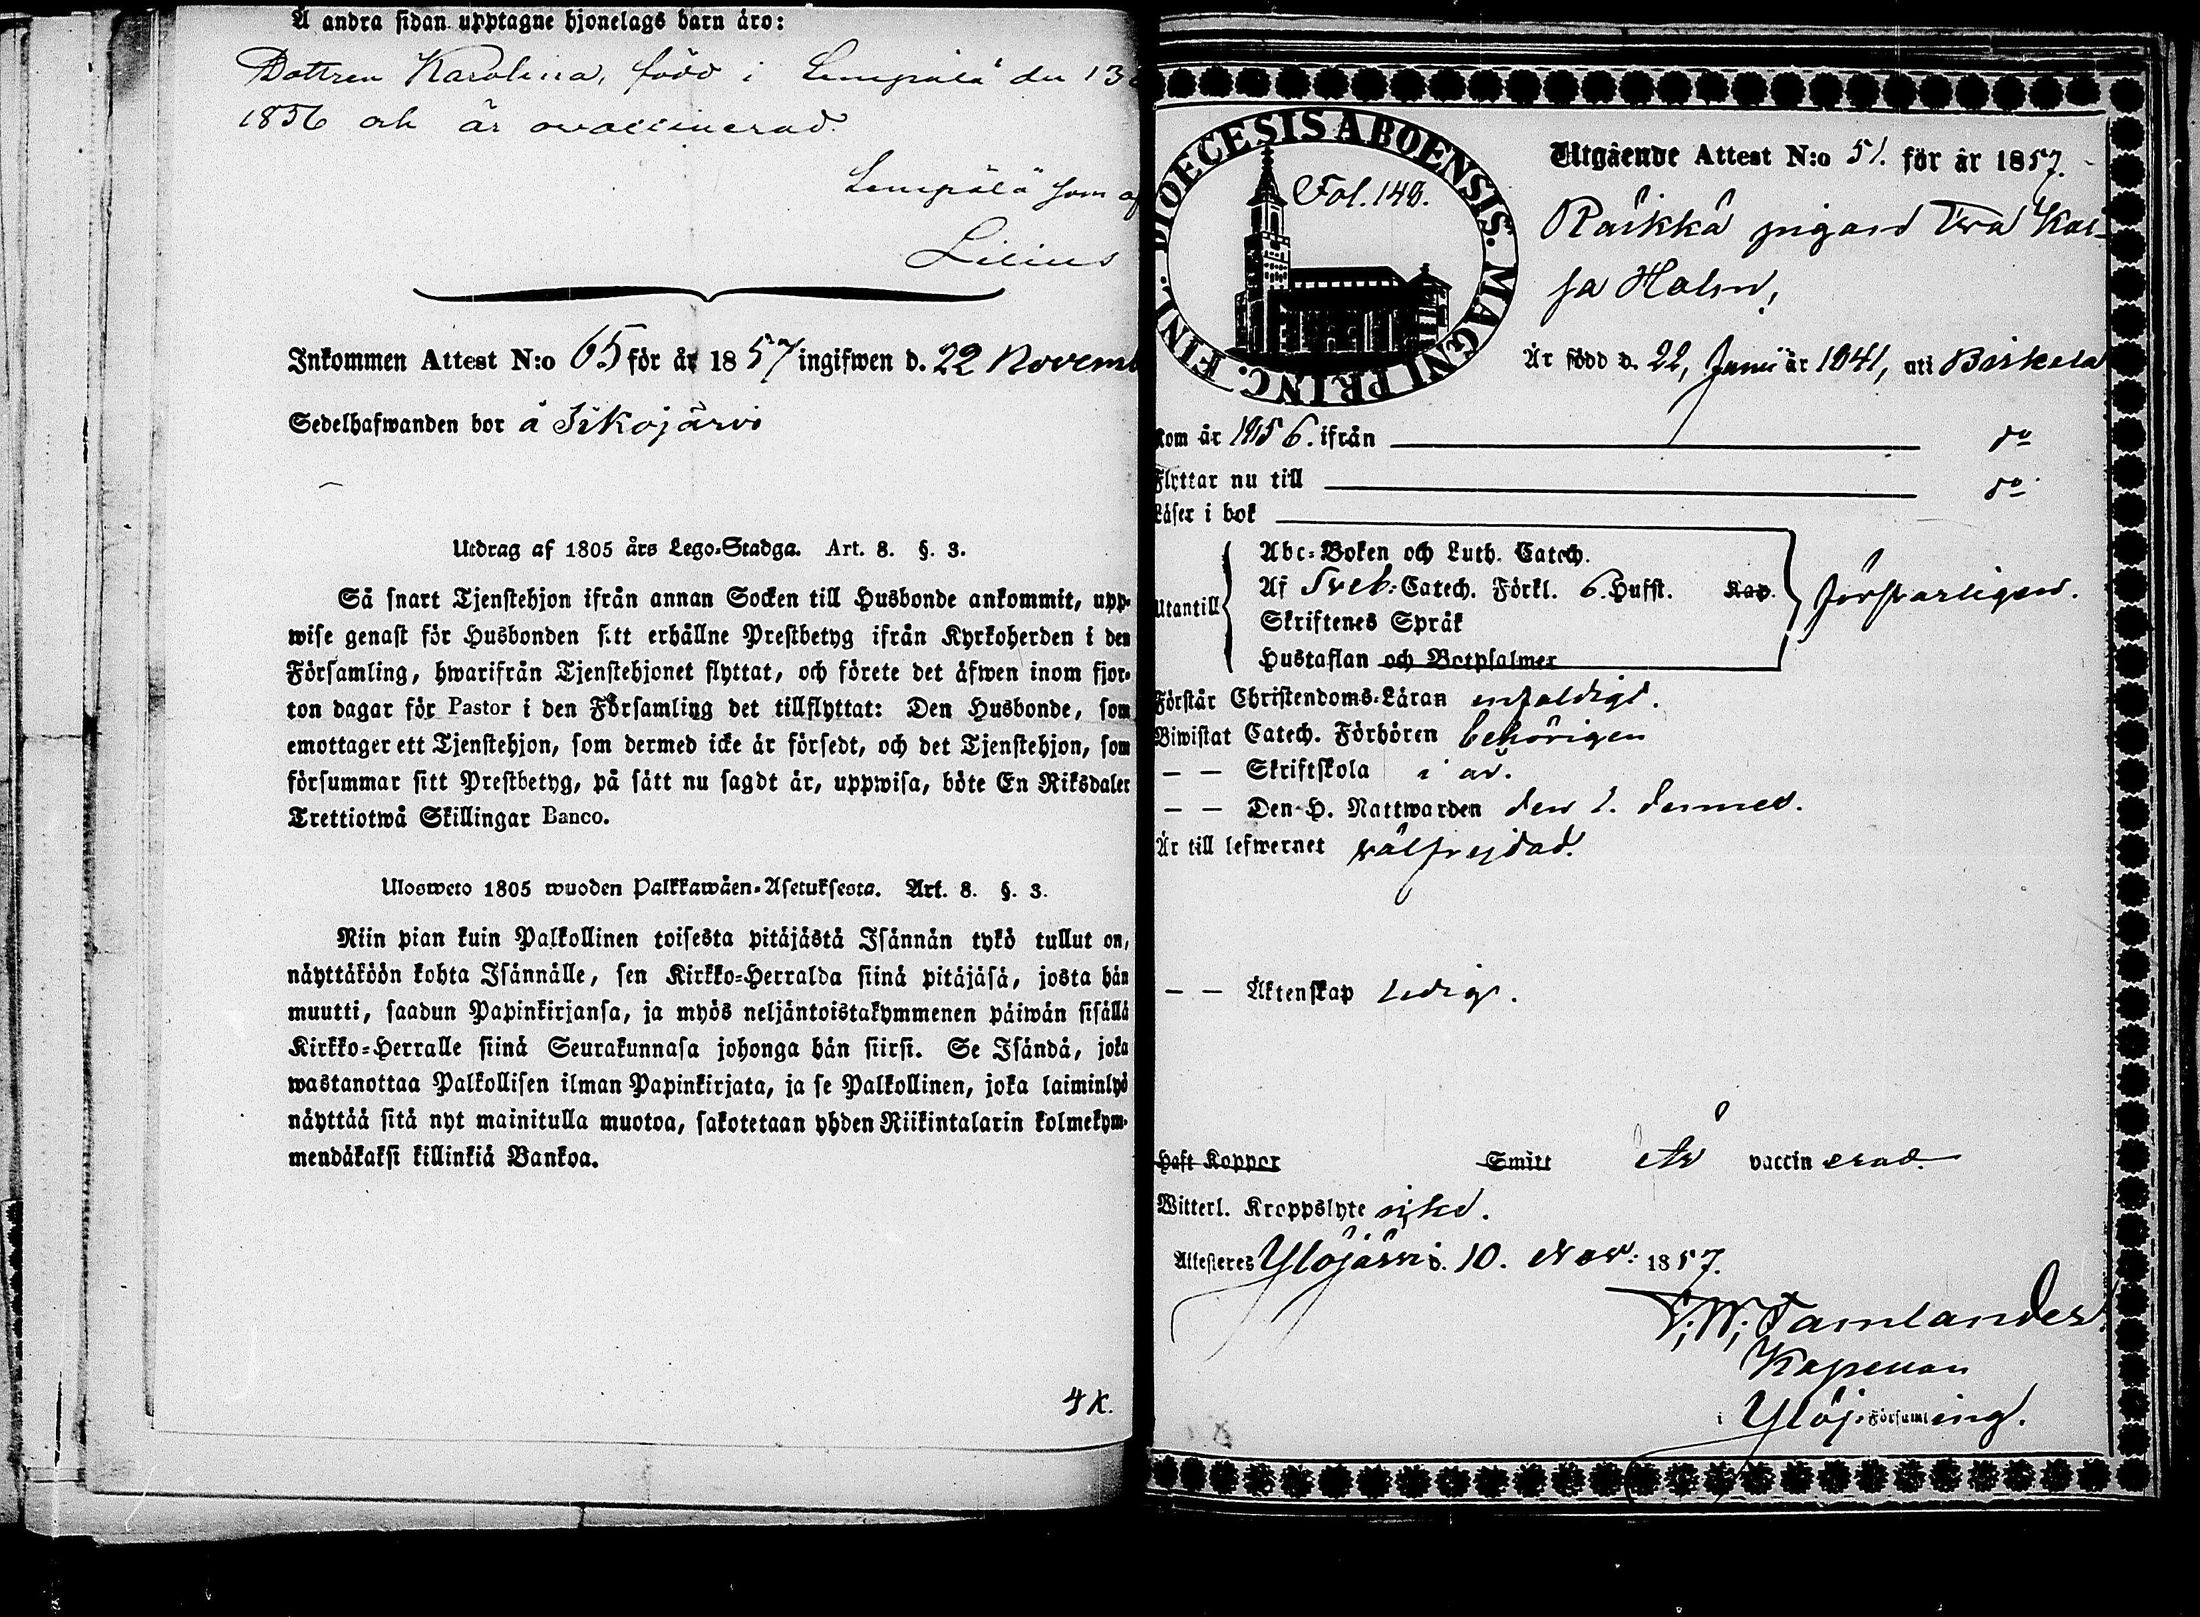 Å andra sidan upptagne hjonelags barn äro:
Dottren Karolina, född i Lempälä den 13
1856 och är ovaccinerad.
Lempälä som
Lilius
Inkommen Attest N:o 65 för år 1857 ingifwen d. 22 Novemb
Sedelhafwanden bor å Sikojärvi
Utdrag af 1805 års Lego-Stadga. Art. 8. §. 3.
Så snart Tjenstehjon ifrån annan Socken till Husbonde ankommit, upp-
wise genast för Husbonden sitt erhållne Prestbetyg ifrån Kyrkoherden i den
Församling, hwarifrån Tjenstehjonet flyttat, och förete det äfwen inom fjor-
ton dagar för Pastor i den Församling det tillflyttat: Den Husbonde, som
emottager ett Tjenstehjon, som dermed icke är försedt, och det Tjenstehjon, som
försummar sitt Prestbetyg, på sätt nu sagdt är, uppwisa, böte En Riksdaler
Trettiotwå Skillingar Banco.
Ulosweto 1805 wuoden Palkkawäen-Asetuksesta. Art. 8. §. 3.
Niin pian kuin Palkollinen toisesta pitäjästä Isännän tykö tullut on,
näyttäköön kohta Isännälle, sen Kirkko-Herralda siinä pitäjäsä, josta hän
muutti, saadun Papinkirjansa, ja myös neljäntoistakymmenen päiwän sisällä
Kirkko-Herralle siinä Seurakunnasa johonga hän siirsi. Se Isändä, joka
wastanottaa Palkollisen ilman Papinkirjata, ja se Palkollinen, joka laiminlyö
näyttää sitä nyt mainitulla muotoa, sakotetaan yhden Riikintalarin kolmekym-
mendäkaksi killinkiä Bankoa.
4 K.
DIOECESIS ABOENSIS. MAGNI PRINC. FINL.
Fol. 140.
Utgående Attest N:o 51. för år 1857.
Räikkä pigan Eva Kai-
sa Holm,
Är född d. 22, Januär 1841, uti Birkala
Kom år 1856. ifrån do
Flyttar nu till do
Läser i bok
Utantill
Abc-Boken och Luth. Catech.
Af Sveb: Catech. Förkl. 6. Hufst. Kap.
Skriftenes Språk
Hustaflan och Botpsalmer
försvarligen.
Förstår Christendoms-Läran enfaldigt.
Biwistat Catech. Förhören behörigen
— — Skriftskola i år.
— — Den H. Nattwarden den 1. dennes.
Är till lefwernet välfrejdad.
— — Äktenskap ledig.
Haft Koppor Smitt Är vaccinerad.
Witterl. Kroppslyte icke.
Attesteres Ylöjärvi d. 10. Nov: 1857.
Tamlander
Kapellan
i Ylöj. Församling.